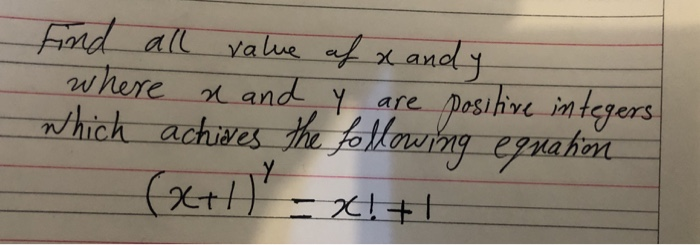 Find all value of x and y
where x and y are positive integers
which achieves the following equation
(x+1)^y = x! + 1